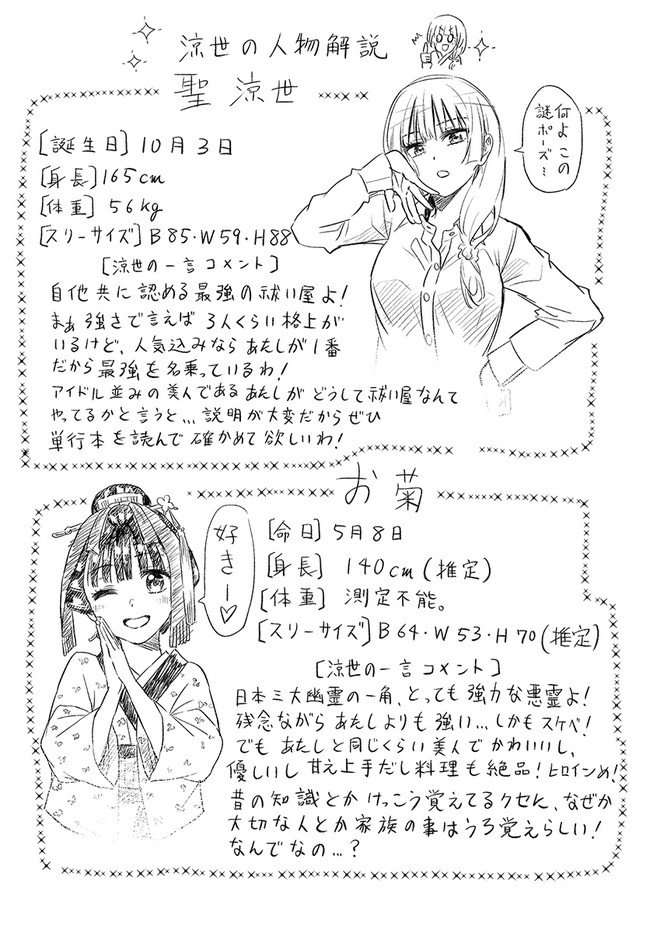 涼世の人物解説
聖 涼世
何よ この
謎ポーズ…
[誕生日] 10月3日
[身長] 165cm
[体重] 56kg
[スリーサイズ] B85・W59・H88
[涼世の一言コメント]
自他共に認める最強の祓い屋よ!
まぁ強さで言えば3人くらい格上が
いるけど、人気込みならあたしが1番
だから最強を名乗っているわ!
アイドル並みの美人であるあたしがどうして祓い屋なんて
やってるかと言うと…説明が大変だからぜひ
単行本を読んで確かめて欲しいわ!
お菊
好きー♡
[命日] 5月8日
[身長] 140cm(推定)
[体重] 測定不能。
[スリーサイズ] B64・W53・H70(推定)
[涼世の一言コメント]
日本三大幽霊の一角、とっても強力な悪霊よ!
残念ながらあたしよりも強い…しかもスケベ!
でもあたしと同じくらい美人でかわいいし、
優しいし甘え上手だし料理も絶品!ヒロインめ!
昔の知識とかけっこう覚えてるクセに、なぜか
大切な人とか家族の事はうろ覚えらしい!
なんでなの…?